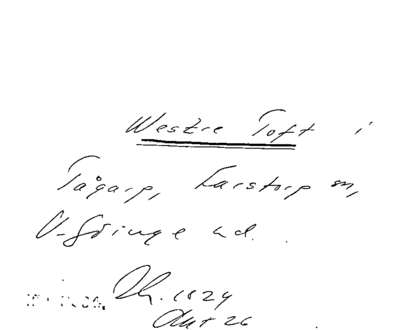 Westre Toft i
Tågarp, Farstorp sn,
V-Göinge hd.
Dh. 1824
Akt 26